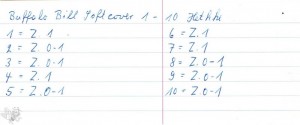 Buffalo Bill Softcover 1 - 10 Hethke
1 = Z. 1
2 = Z. 0-1
3 = Z. 0-1
4 = Z. 1
5 = Z. 0-1
6 = Z. 1
7 = Z. 1
8 = Z. 0-1
9 = Z. 0-1
10 = Z. 0-1